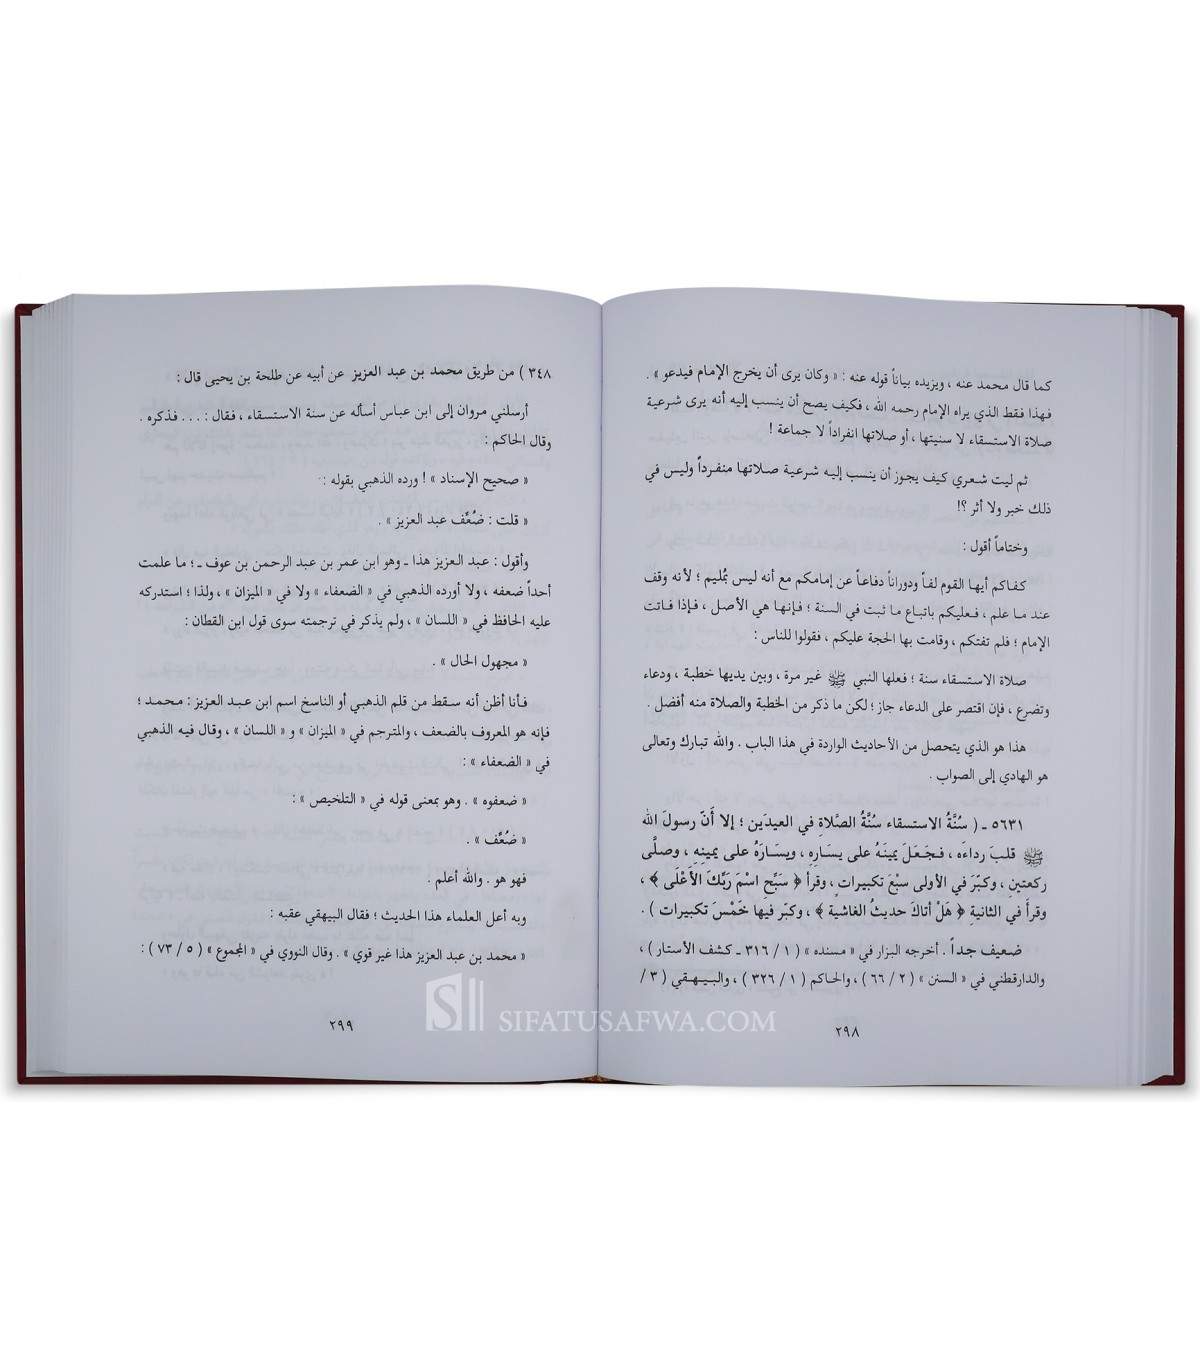 كما قال محمد عنه ، ويزيده بياناً قوله عنه : « وكان يرى أن يخرج الإمام فيدعو » .
فهذا فقط الذي يراه الإمام رحمه الله ، فكيف يصح أن ينسب إليه أنه يرى شرعية
صلاة الاستسقاء لا سنيتها ، أو صلاتها انفراداً لا جماعة !
ثم ليت شعري كيف يجوز أن ينسب إليه شرعية صلاتها منفرداً وليس في
ذلك خبر ولا أثر ؟!
وختاماً أقول :
كفاكم أيها القوم لفاً ودوراناً دفاعاً عن إمامكم مع أنه ليس بمُليم ؛ لأنه وقف
عند ما علم ، فعليكم باتباع ما ثبت في السنة ؛ فإنها هي الأصل ، فإذا فاتت
الإمام ؛ فلم تفتكم ، وقامت بها الحجة عليكم ، فقولوا للناس :
صلاة الاستسقاء سنة ؛ فعلها النبي ﷺ غير مرة ، وبين يديها خطبة ، ودعاء
وتضرع ، فإن اقتصر على الدعاء جاز ؛ لكن ما ذكر من الخطبة والصلاة منه أفضل .
هذا هو الذي يتحصل من الأحاديث الواردة في هذا الباب . والله تبارك وتعالى
هو الهادي إلى الصواب .
٥٦٣١ ـ ( سُنَّةُ الاستسقاء سُنَّةُ الصَّلاةِ في العيدَين ؛ إلا أَنّ رسولَ الله
ﷺ قلبَ رداءَه ، فجَعَلَ يمينَهُ على يسَارِهِ ، ويسَارَهُ على يمينِهِ ، وصلَّى
ركعتينِ ، وكبّرَ في الأولى سبْعَ تكبيراتٍ ، وقرأَ ﴿ سَبِّحِ اسْمَ رَبِّكَ الأَعْلَى ﴾ ،
وقرأَ في الثانيةِ ﴿ هَلْ أتاكَ حديثُ الغاشية ﴾ ، وكبّر فيها خَمْسَ تكبيرات ) .
ضعيف جداً . أخرجه البزار في « مسنده » ( ١ / ٣١٦ ـ كشف الأستار ) ،
والدارقطني في « السنن » ( ٢ / ٦٦ ) ، والحاكم ( ١ / ٣٢٦ ) ، والبيهقي ( ٣ /
٢٩٨
٣٤٨ ) من طريق محمد بن عبد العزيز عن أبيه عن طلحة بن يحيى قال :
أرسلني مروان إلى ابن عباس أسأله عن سنة الاستسقاء ، فقال : . . . فذكره .
وقال الحاكم :
« صحيح الإسناد » ! ورده الذهبي بقوله :
« قلت : ضُعِّف عبد العزيز » .
وأقول : عبد العزيز هذا ـ وهو ابن عمر بن عبد الرحمن بن عوف ـ ؛ ما علمت
أحداً ضعفه ، ولا أورده الذهبي في « الضعفاء » ولا في « الميزان » ، ولذا ؛ استدركه
عليه الحافظ في « اللسان » ، ولم يذكر في ترجمته سوى قول ابن القطان :
« مجهول الحال » .
فأنا أظن أنه سقط من قلم الذهبي أو الناسخ اسم ابن عبد العزيز : محمد ؛
فإنه هو المعروف بالضعف ، والمترجم في « الميزان » و « اللسان » ، وقال فيه الذهبي
في « الضعفاء » :
« ضعفوه » . وهو بمعنى قوله في « التلخيص » :
« ضُعِّف » .
فهو هو . والله أعلم .
وبه أعل العلماء هذا الحديث ؛ فقال البيهقي عقبه :
« محمد بن عبد العزيز هذا غير قوي » . وقال النووي في « المجموع » ( ٥ / ٧٣ ) :
٢٩٩
SIFATUSAFWA.COM